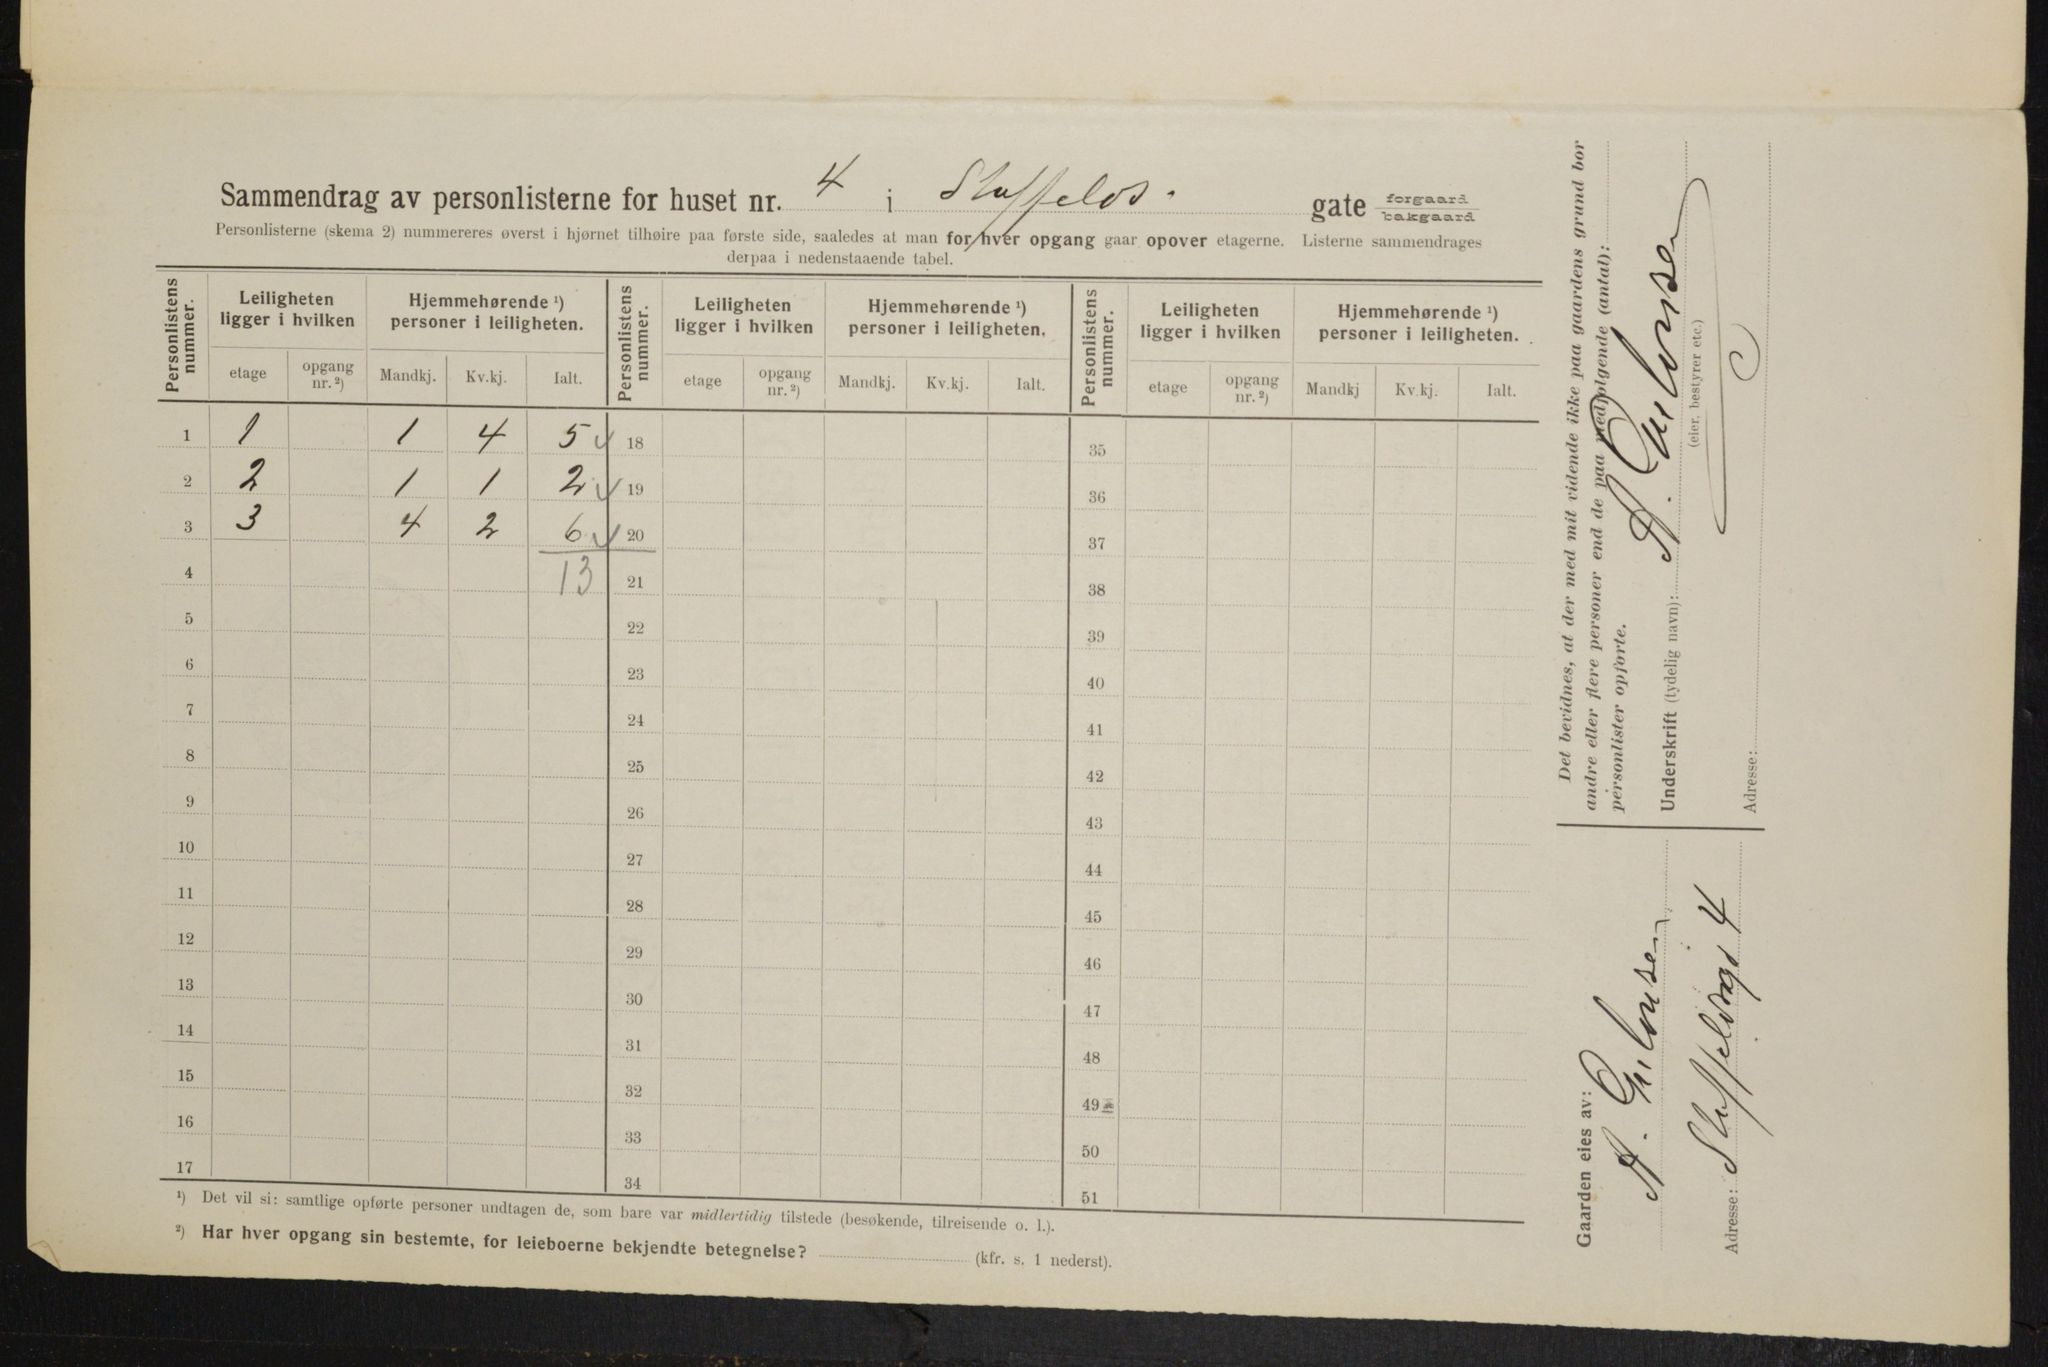 Sammendrag av personlisterne for huset nr. 4 i Staffelds. gate forgaard bakgaard
Personlisterne (skema 2) nummereres øverst i hjørnet tilhøire paa første side, saaledes at man for hver opgang gaar opover etagerne. Listerne sammendrages
derpaa i nedenstaaende tabel.
Personlistens nummer. Leiligheten ligger i hvilken Hjemmehørende ¹) personer i leiligheten. Personlistens nummer. Leiligheten ligger i hvilken Hjemmehørende ¹) personer i leiligheten. Personlistens nummer. Leiligheten ligger i hvilken Hjemmehørende ¹) personer i leiligheten.
etage opgang nr. ²) Mandkj. Kv.kj. Ialt. etage opgang nr. ²) Mandkj. Kv.kj. Ialt. etage opgang nr. ²) Mandkj Kv.kj. Ialt.
1 1 1 4 5 ✓ 18 35
2 2 1 1 2 ✓ 19 36
3 3 4 2 6 ✓ 20 37
4 13 21 38
5 22 39
6 23 40
7 24 41
8 25 42
9 26 43
10 27 44
11 28 45
12 29 46
13 30 47
14 31 48
15 32 49
16 33 50
17 34 51
¹) Det vil si: samtlige opførte personer undtagen de, som bare var midlertidig tilstede (besøkende, tilreisende o. l.).
²) Har hver opgang sin bestemte, for leieboerne bekjendte betegnelse? (kfr. s. 1 nederst).
Det bevidnes, at der med mit vidende ikke paa gaardens grund bor
andre eller flere personer end de paa medfølgende (antal):
personlister opførte.
Underskrift (tydelig navn): A.
(eier, bestyrer etc.)
Adresse:
Gaarden eies av:
A.
Adresse: Staffeldsgt 4